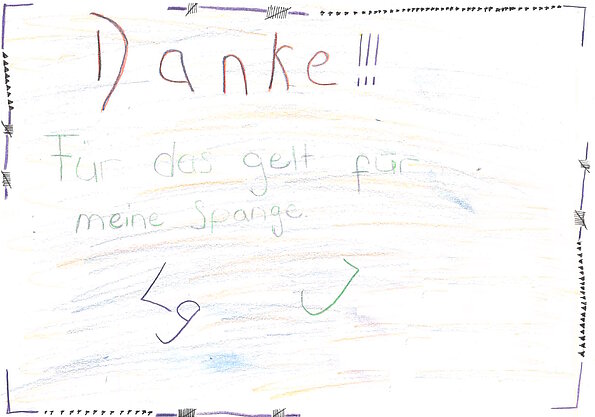 Danke!!!
Für das gelt für
meine Spange.